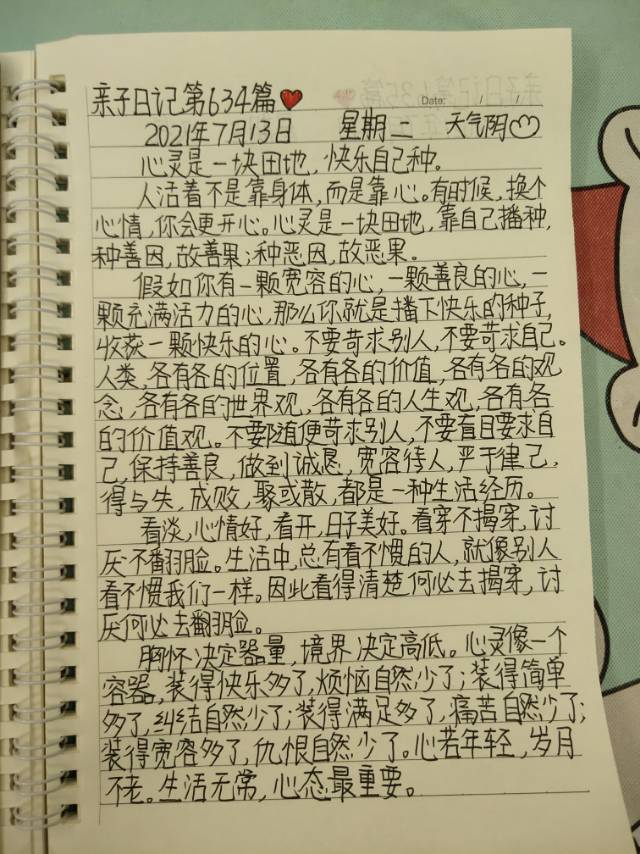 亲子日记第634篇
Date: / / /
2021年7月13日 星期二 天气阴
心灵是一块田地，快乐自己种。
人活着不是靠身体，而是靠心。有时候，换个
心情，你会更开心。心灵是一块田地，靠自己播种，
种善因，故善果；种恶因，故恶果。
假如你有一颗宽容的心，一颗善良的心，一
颗充满活力的心，那么你就是播下快乐的种子，
收获一颗快乐的心。不要苛求别人，不要苛求自己。
人类，各有各的位置，各有各的价值，各有各的观
念，各有各的世界观，各有各的人生观，各有各
的价值观。不要随便苛求别人，不要盲目要求自
己，保持善良，做到诚恳，宽容待人，严于律己，
得与失，成败，聚或散，都是一种生活经历。
看淡，心情好，看开，日子美好。看穿不揭穿，讨
厌不翻脸。生活中，总有看不惯的人，就像别人
看不惯我们一样。因此看得清楚何必去揭穿，讨
厌何必去翻脸。
胸怀决定器量，境界决定高低。心灵像一个
容器，装得快乐多了，烦恼自然少了；装得简单
多了，纠结自然少了；装得满足多了，痛苦自然少了；
装得宽容多了，仇恨自然少了。心若年轻，岁月
不老。生活无常，心态最重要。